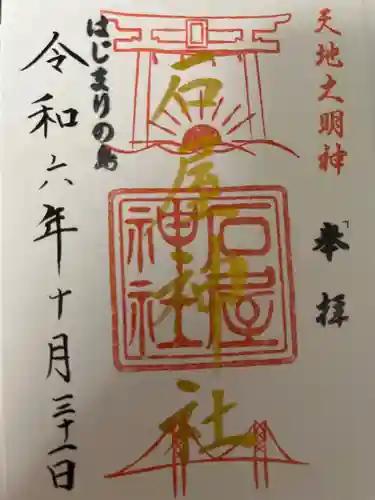 天地大明神
奉拝
石屋神社
石屋神社
はじまりの島
令和六年十月三十一日